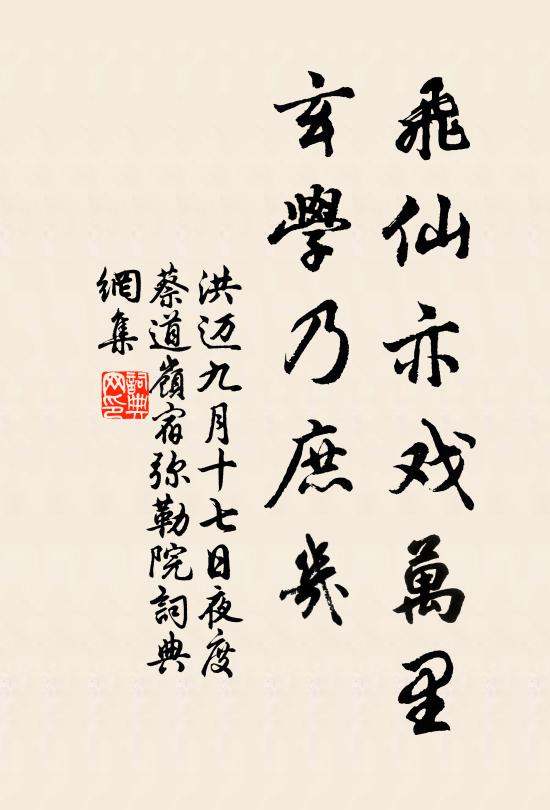 飛仙亦戏萬里
玄學乃庶幾
洪迈九月十七日夜度
蔡道嶺宿弥勒院詞典
網集
詞典
网印